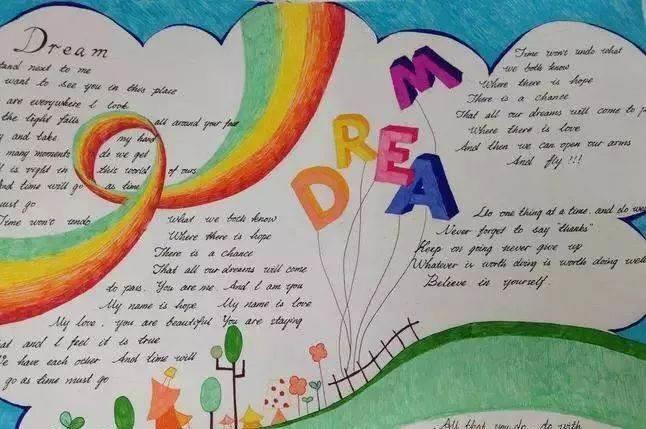 Dream
and next to me
want to see you in this place
are everywhere I look
the light falls all around your face
y and take my hand
many moments do we get
is right in this world of ours
nd time will go as time
ust go
Time won't undo
What we both know
Where there is hope
There is a chance
That all our dreams will come
to pass. You are me. And I am you
My name is hope. My name is love
My love, you are beautiful You are staying
at and I feel it is true
We have each other And time will
go as time must go
DREAM
Time won't undo what
we both know
Where there is hope
There is a chance
That all our dreams will come to p
Where there is love
And then we can open our arms
And fly!!!
Do one thing at a time, and do we
Never forget to say "thanks"
Keep on going never give up
Whatever is worth doing is worth doing well
Believe in yourself.
All that you do, do with